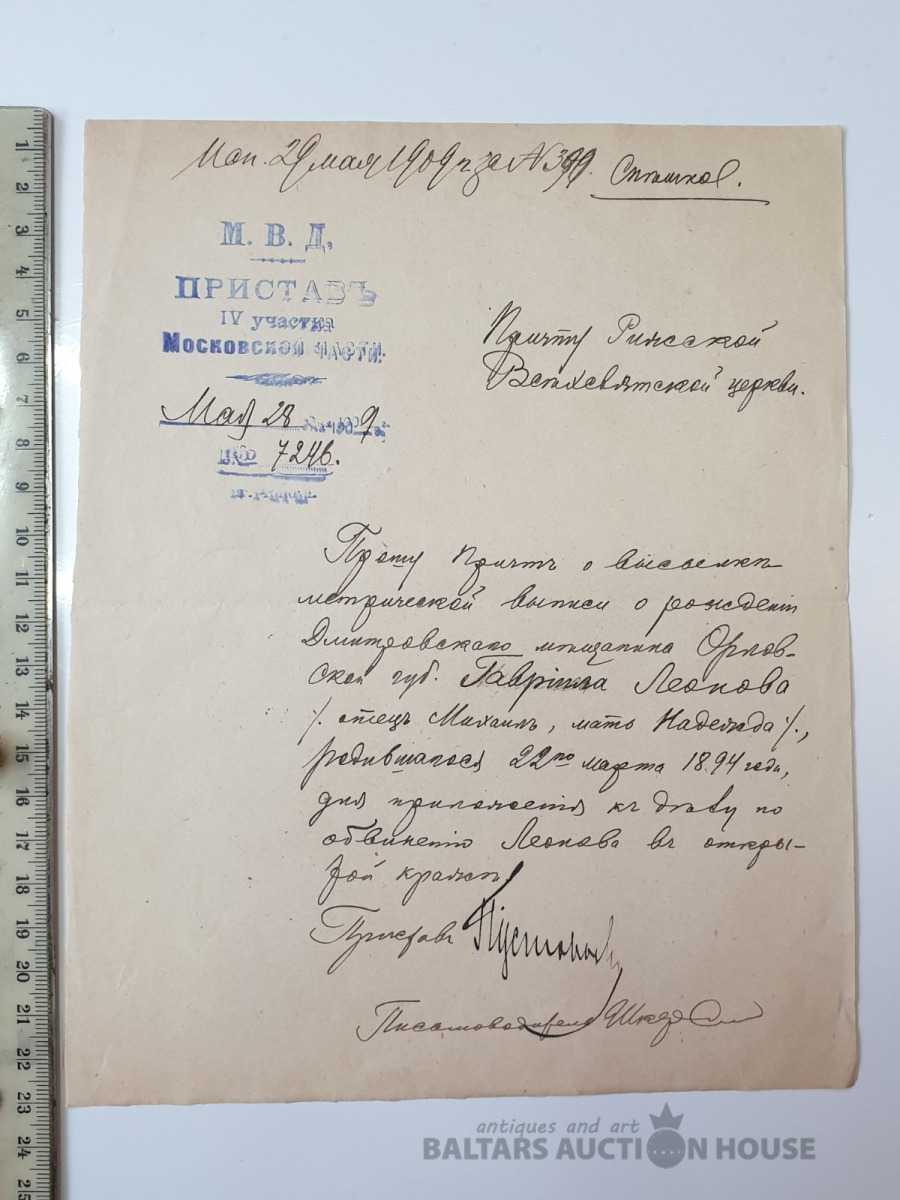 Исп. 29 мая 1909 г за № 399.
М. В. Д.
ПРИСТАВЪ
IV участка
МОСКОВСКОЙ ЧАСТИ.
Мая 28 1909 г.
№ 7246.
г. Рига
Причту Рижской
Всѣхсвятской церкви.
Прошу Причтъ о высылкѣ
метрической выписи о рожденіи
Дмитровскаго мѣщанина Орлов-
ской губ. Гавріила Леонова
/. отецъ Михаилъ, мать Надежда /.,
родившагося 22го марта 1894 года,
для приложенія къ дѣлу по
обвиненію Леонова въ откры-
той кражѣ.
Приставъ
Письмоводитель
1
2
3
4
5
6
7
8
9
10
11
12
13
14
15
16
17
18
19
20
21
22
23
24
25
antiques and art
BALTARS AUCTION HOUSE